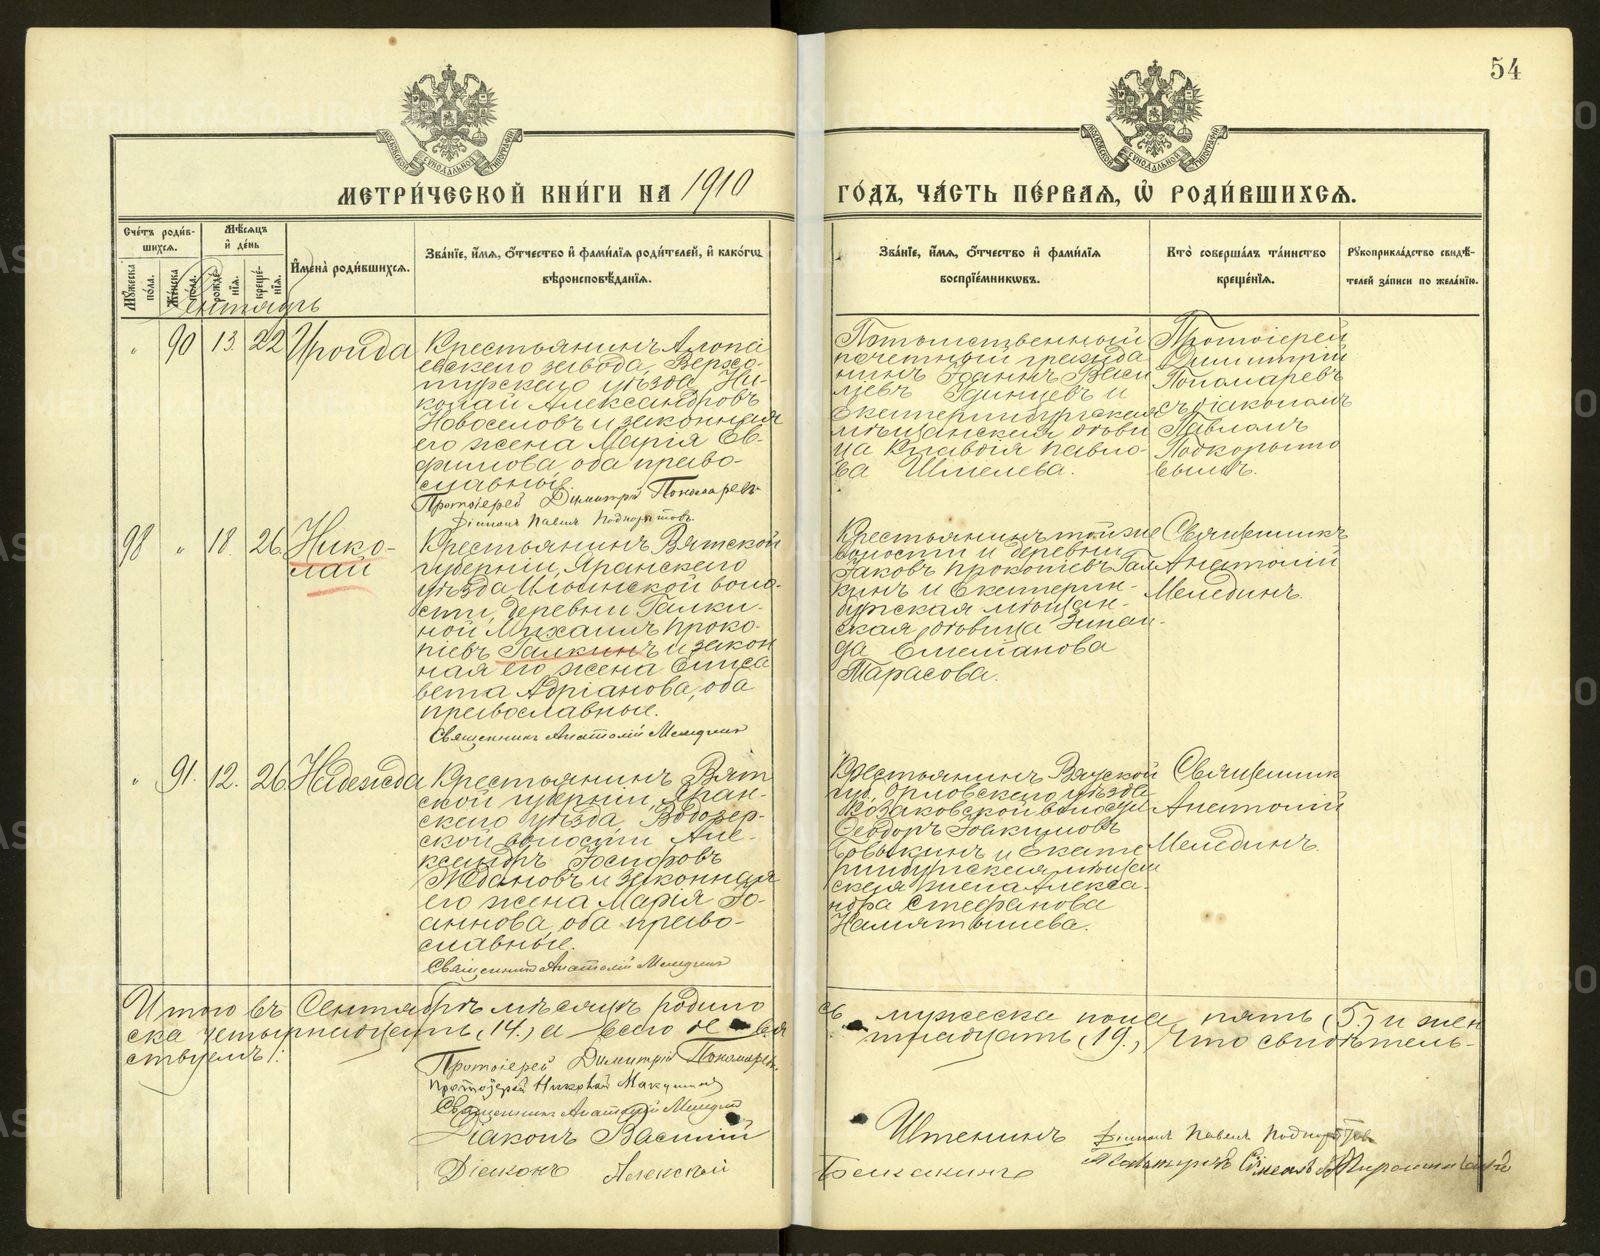 54
МЕТРИ́ЧЕСКОЙ КНИ́ГИ НА 1910
ГО́ДЪ, ЧА́СТЬ ПЕ́РВАЯ, Ѡ РОДИ́ВШИХСѦ.
Счётъ роди́в-
шихсѧ.
Мѣ́сѧцъ
и҆ де́нь
Мꙋ́жеска по́ла.
Же́нска по́ла.
рожде́нїѧ.
креще́нїѧ.
И҆мена̀ роди́вшихсѧ.
Зва́нїе, и҆́мѧ, ѻ҆́тчество и҆ фами́лїѧ роди́телей, и҆ како́гѡ
вѣроисповѣ́данїѧ.
Зва́нїе, и҆́мѧ, ѻ҆́тчество и҆ фами́лїѧ
воспрїе́мникѡвъ.
Кто̀ соверша́лъ та́инство
креще́нїѧ.
Рꙋкоприкла́дство свидѣ́-
телей за́писи по жела́нїю.
Сентябрь
" 90 13. 22 Ироида
Крестьянинъ Алопа
евскаго завода, Верхо-
турскаго уѣзда, Ни-
колай Александровъ
Новоселовъ и законная
его жена Марія Ев-
фимова, оба право-
славные.
Протоіерей Димитрій Пономаревъ
Діаконъ Павелъ Подкорытовъ
Потомственный
почетный гражда
нинъ Іоаннъ Васи
льевъ и
Екатеринбургская
мѣщанская дѣви
ца Клавдія Павло-
ва Шмелева.
Протоіерей
Димитрій
Пономаревъ
съ діакономъ
Павломъ
Подкорыто
вымъ.
98 " 18. 26 Нико-
лай
Крестьянинъ Вятской
губерніи, Яранскаго
уѣзда, Ильинской воло-
сти, деревни Галки-
ной Михаилъ Проко-
піевъ Галкинъ и закон
ная его жена Елиса
вета Адріанова, оба
православные.
Священникъ Анатолій Меледин
Крестьянинъ той же
волости и деревни
Іаковъ Прокопіевъ Гал
кинъ и Екатерин-
бургская мѣщан-
ская дѣвица Зинаи-
да Емеліанова
Тарасова.
Священникъ
Анатолій
Мелединъ.
" 91. 12. 26 Надежда
Крестьянинъ Вят
ской губерніи, Яран-
скаго уѣзда, Водозер-
ской волости Але-
ксандръ Іосифовъ
Ждановъ и законная
его жена Марія Іо-
аннова, оба право-
славные.
Священникъ Анатолій Меледин
Крестьянинъ Вятской
губ., Орловскаго уѣзда
Козаковской волости
Ѳеодоръ Іоакимовъ
и Екате
ринбургская мѣщан
ская жена Алекса-
ндра Стефанова
Намятышева.
Священник
Анатолій
Мелединъ.
Итого въ Сентябрѣ мѣсяцѣ родило
ска четырнадцать (14.) а всего
ствуемъ:
сь мужеска пола пять (5.) и жен
тнадцать (19.) Что свидѣтель-
Протоіерей Димитрій Пономарев
Протоіерей Николай
Священникъ Анатолій Меледин
Діаконъ Василій
Діаконъ Алексѣй
Иштенинъ
Діаконъ Павелъ Подкорытов